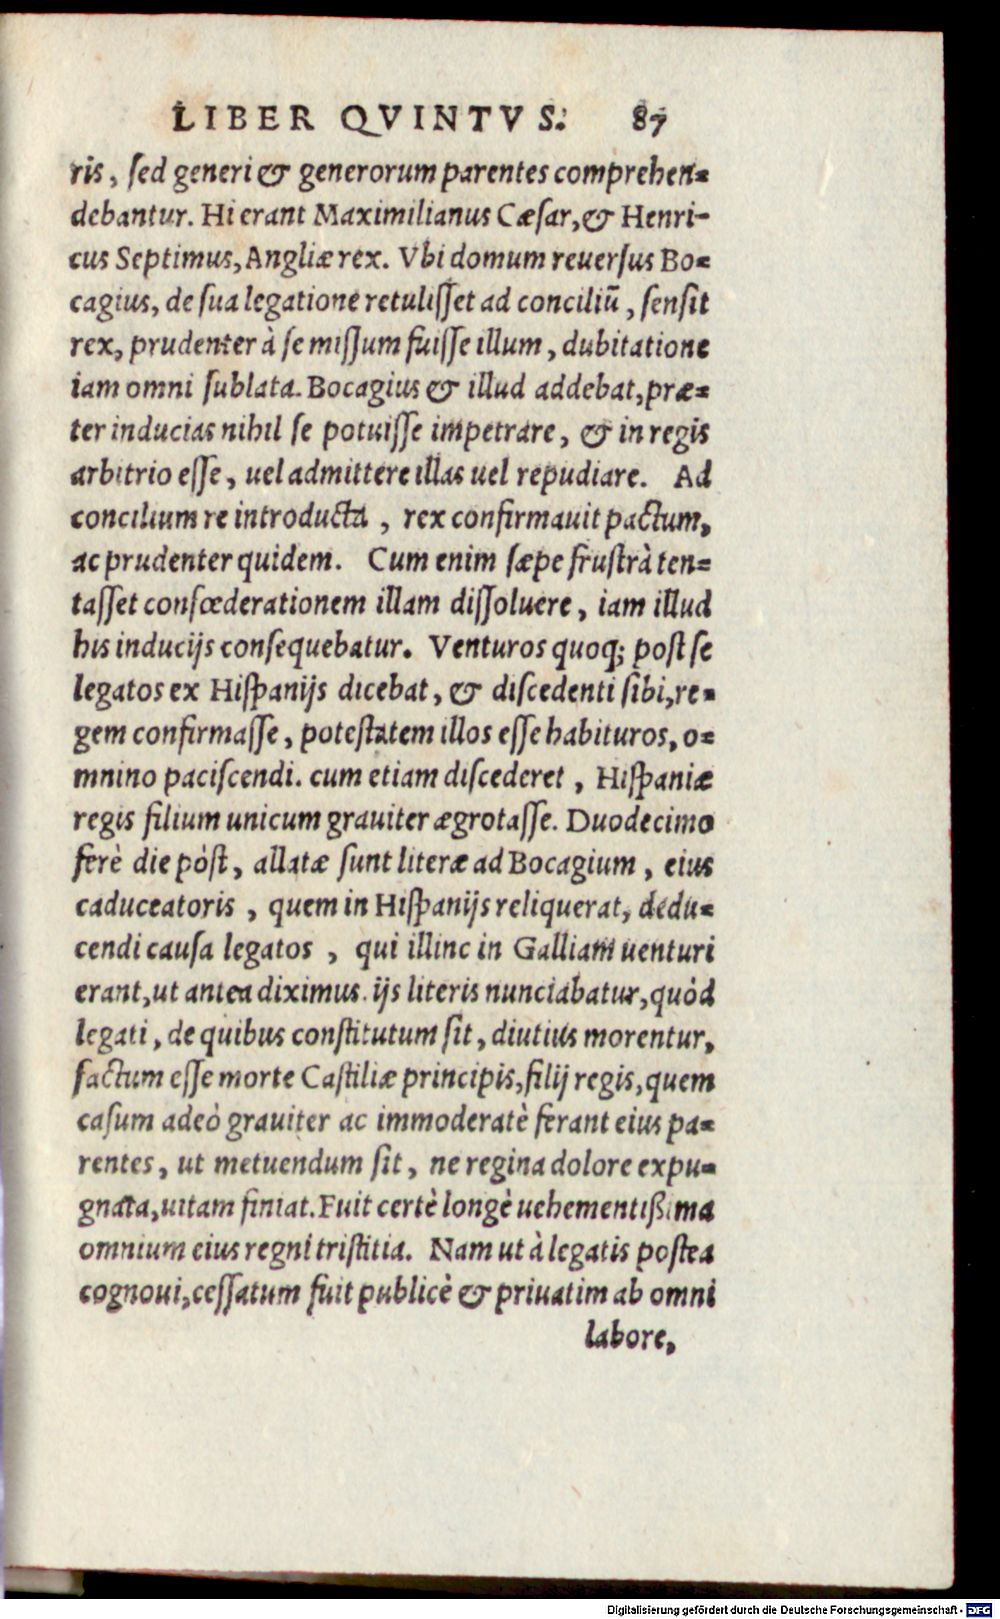 LIBER QVINTVS. 87
ris, sed generi & generorum parentes comprehen=
debantur. Hi erant Maximilianus Cæsar, & Henri-
cus Septimus, Angliæ rex. Vbi domum reuersus Bo=
cagius, de sua legatione retulisset ad conciliũ, sensit
rex, prudenter à se missum fuisse illum, dubitatione
iam omni sublata. Bocagius & illud addebat, præ=
ter inducias nihil se potuisse impetrare, & in regis
arbitrio esse, uel admittere illas uel repudiare. Ad
concilium re introducta, rex confirmauit pactum,
ac prudenter quidem. Cum enim sæpe frustrà ten=
tasset confœderationem illam dissoluere, iam illud
his inducijs consequebatur. Venturos quoq; post se
legatos ex Hispanijs dicebat, & discedenti sibi, re=
gem confirmasse, potestatem illos esse habituros, o=
mnino paciscendi. cum etiam discederet, Hispaniæ
regis filium unicum grauiter ægrotasse. Duodecimo
ferè die pòst, allatæ sunt literæ ad Bocagium, eius
caduceatoris, quem in Hispanijs reliquerat, dedu=
cendi causa legatos, qui illinc in Galliam uenturi
erant, ut antea diximus. ijs literis nunciabatur, quòd
legati, de quibus constitutum sit, diutius morentur,
factum esse morte Castiliæ principis, filij regis, quem
casum adeò grauiter ac immoderatè ferant eius pa=
rentes, ut metuendum sit, ne regina dolore expu=
gnata, uitam finiat. Fuit certè longè uehementißima
omnium eius regni tristitia. Nam ut à legatis postea
cognoui, cessatum fuit publicè & priuatim ab omni
labore,
Digitalisierung gefördert durch die Deutsche Forschungsgemeinschaft - DFG